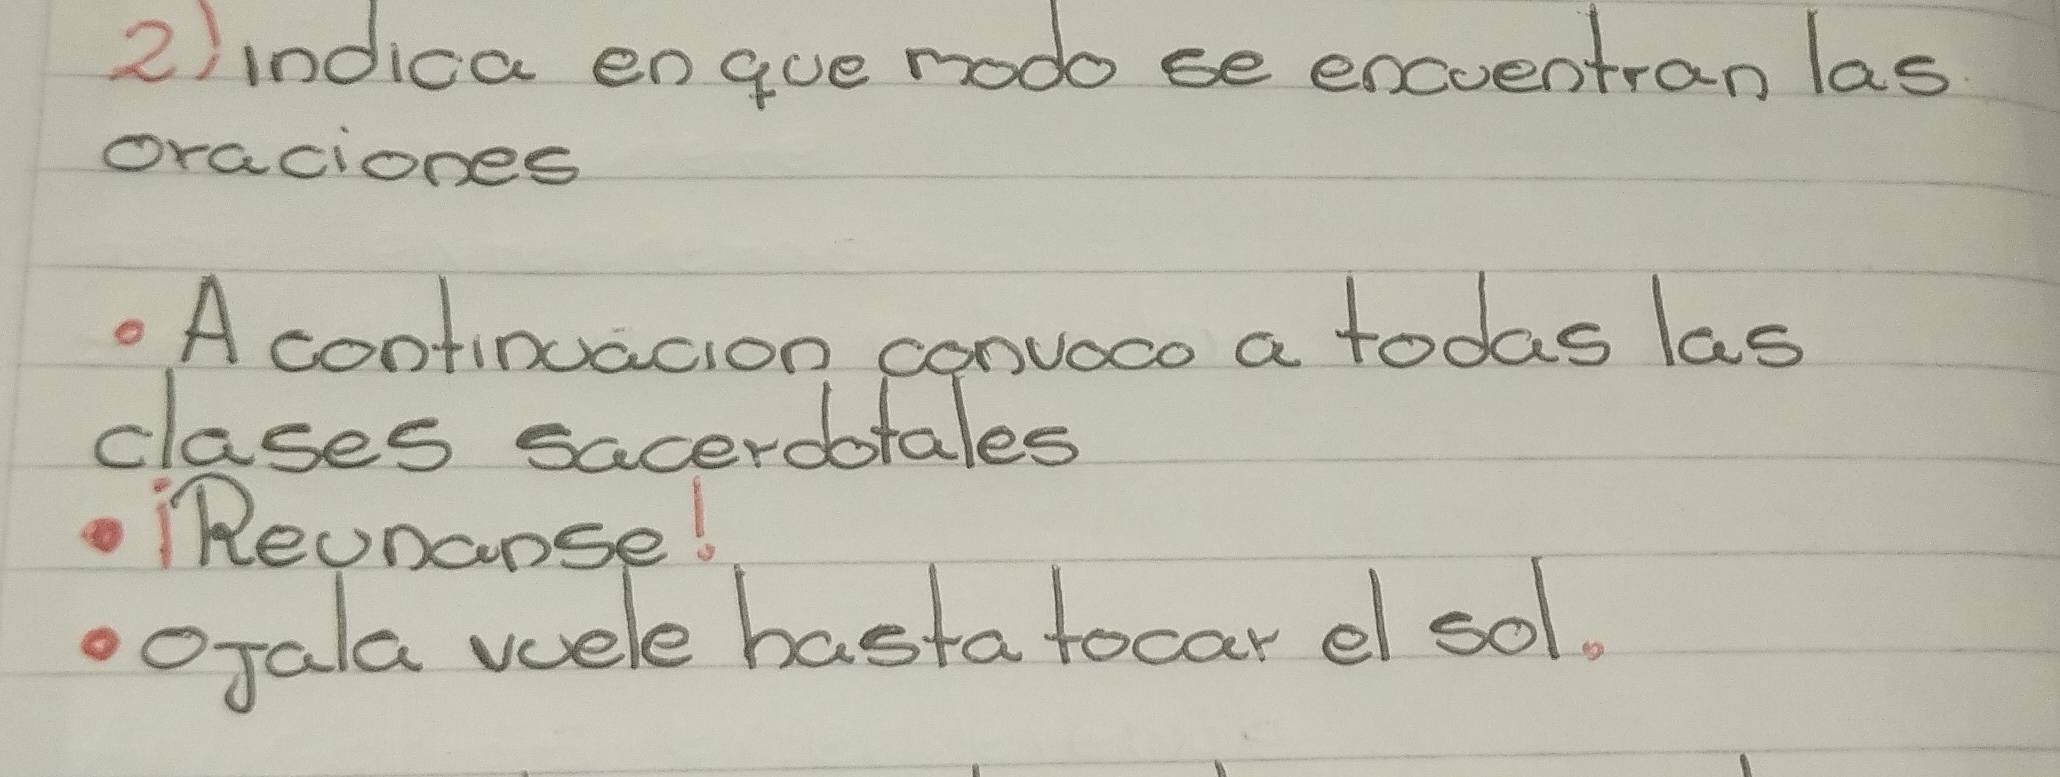 2) indica en que modo se encuentran las
oraciones
• A continuacion convoco a todas las
clases sacerdotales
• ¡Reunanse!
• ojala vuele hasta tocar el sol.